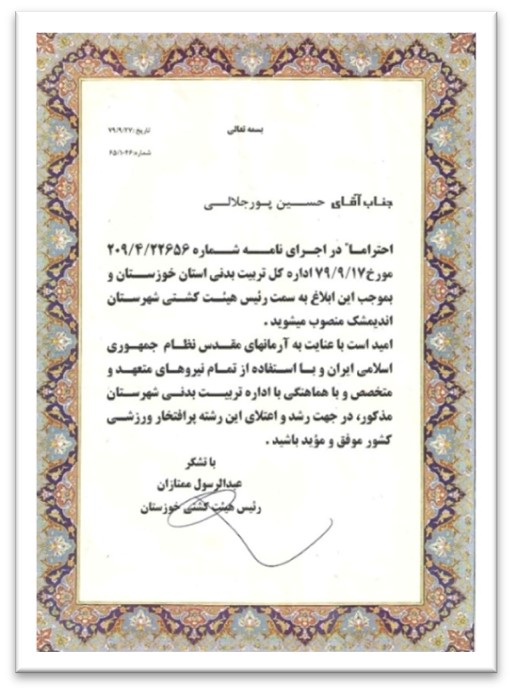 بسمه تعالی
تاریخ: ۷۹/۹/۲۷
شماره: ۶۵/۱۰۲۶
جناب آقای حسین پورجلالی
احتراماً در اجرای نامه شماره ۲۰۹/۴/۲۲۶۵۶
مورخ ۷۹/۹/۱۷ اداره کل تربیت بدنی استان خوزستان و
بموجب این ابلاغ به سمت رئیس هیئت کشتی شهرستان
اندیمشک منصوب میشوید .
امید است با عنایت به آرمانهای مقدس نظام جمهوری
اسلامی ایران و با استفاده از تمام نیروهای متعهد و
متخصص و با هماهنگی با اداره تربیت بدنی شهرستان
مذکور، در جهت رشد و اعتلای این رشته پرافتخار ورزشی
کشور موفق و مؤید باشید .
با تشکر
عبدالرسول ممتازان
رئیس هیئت کشتی خوزستان